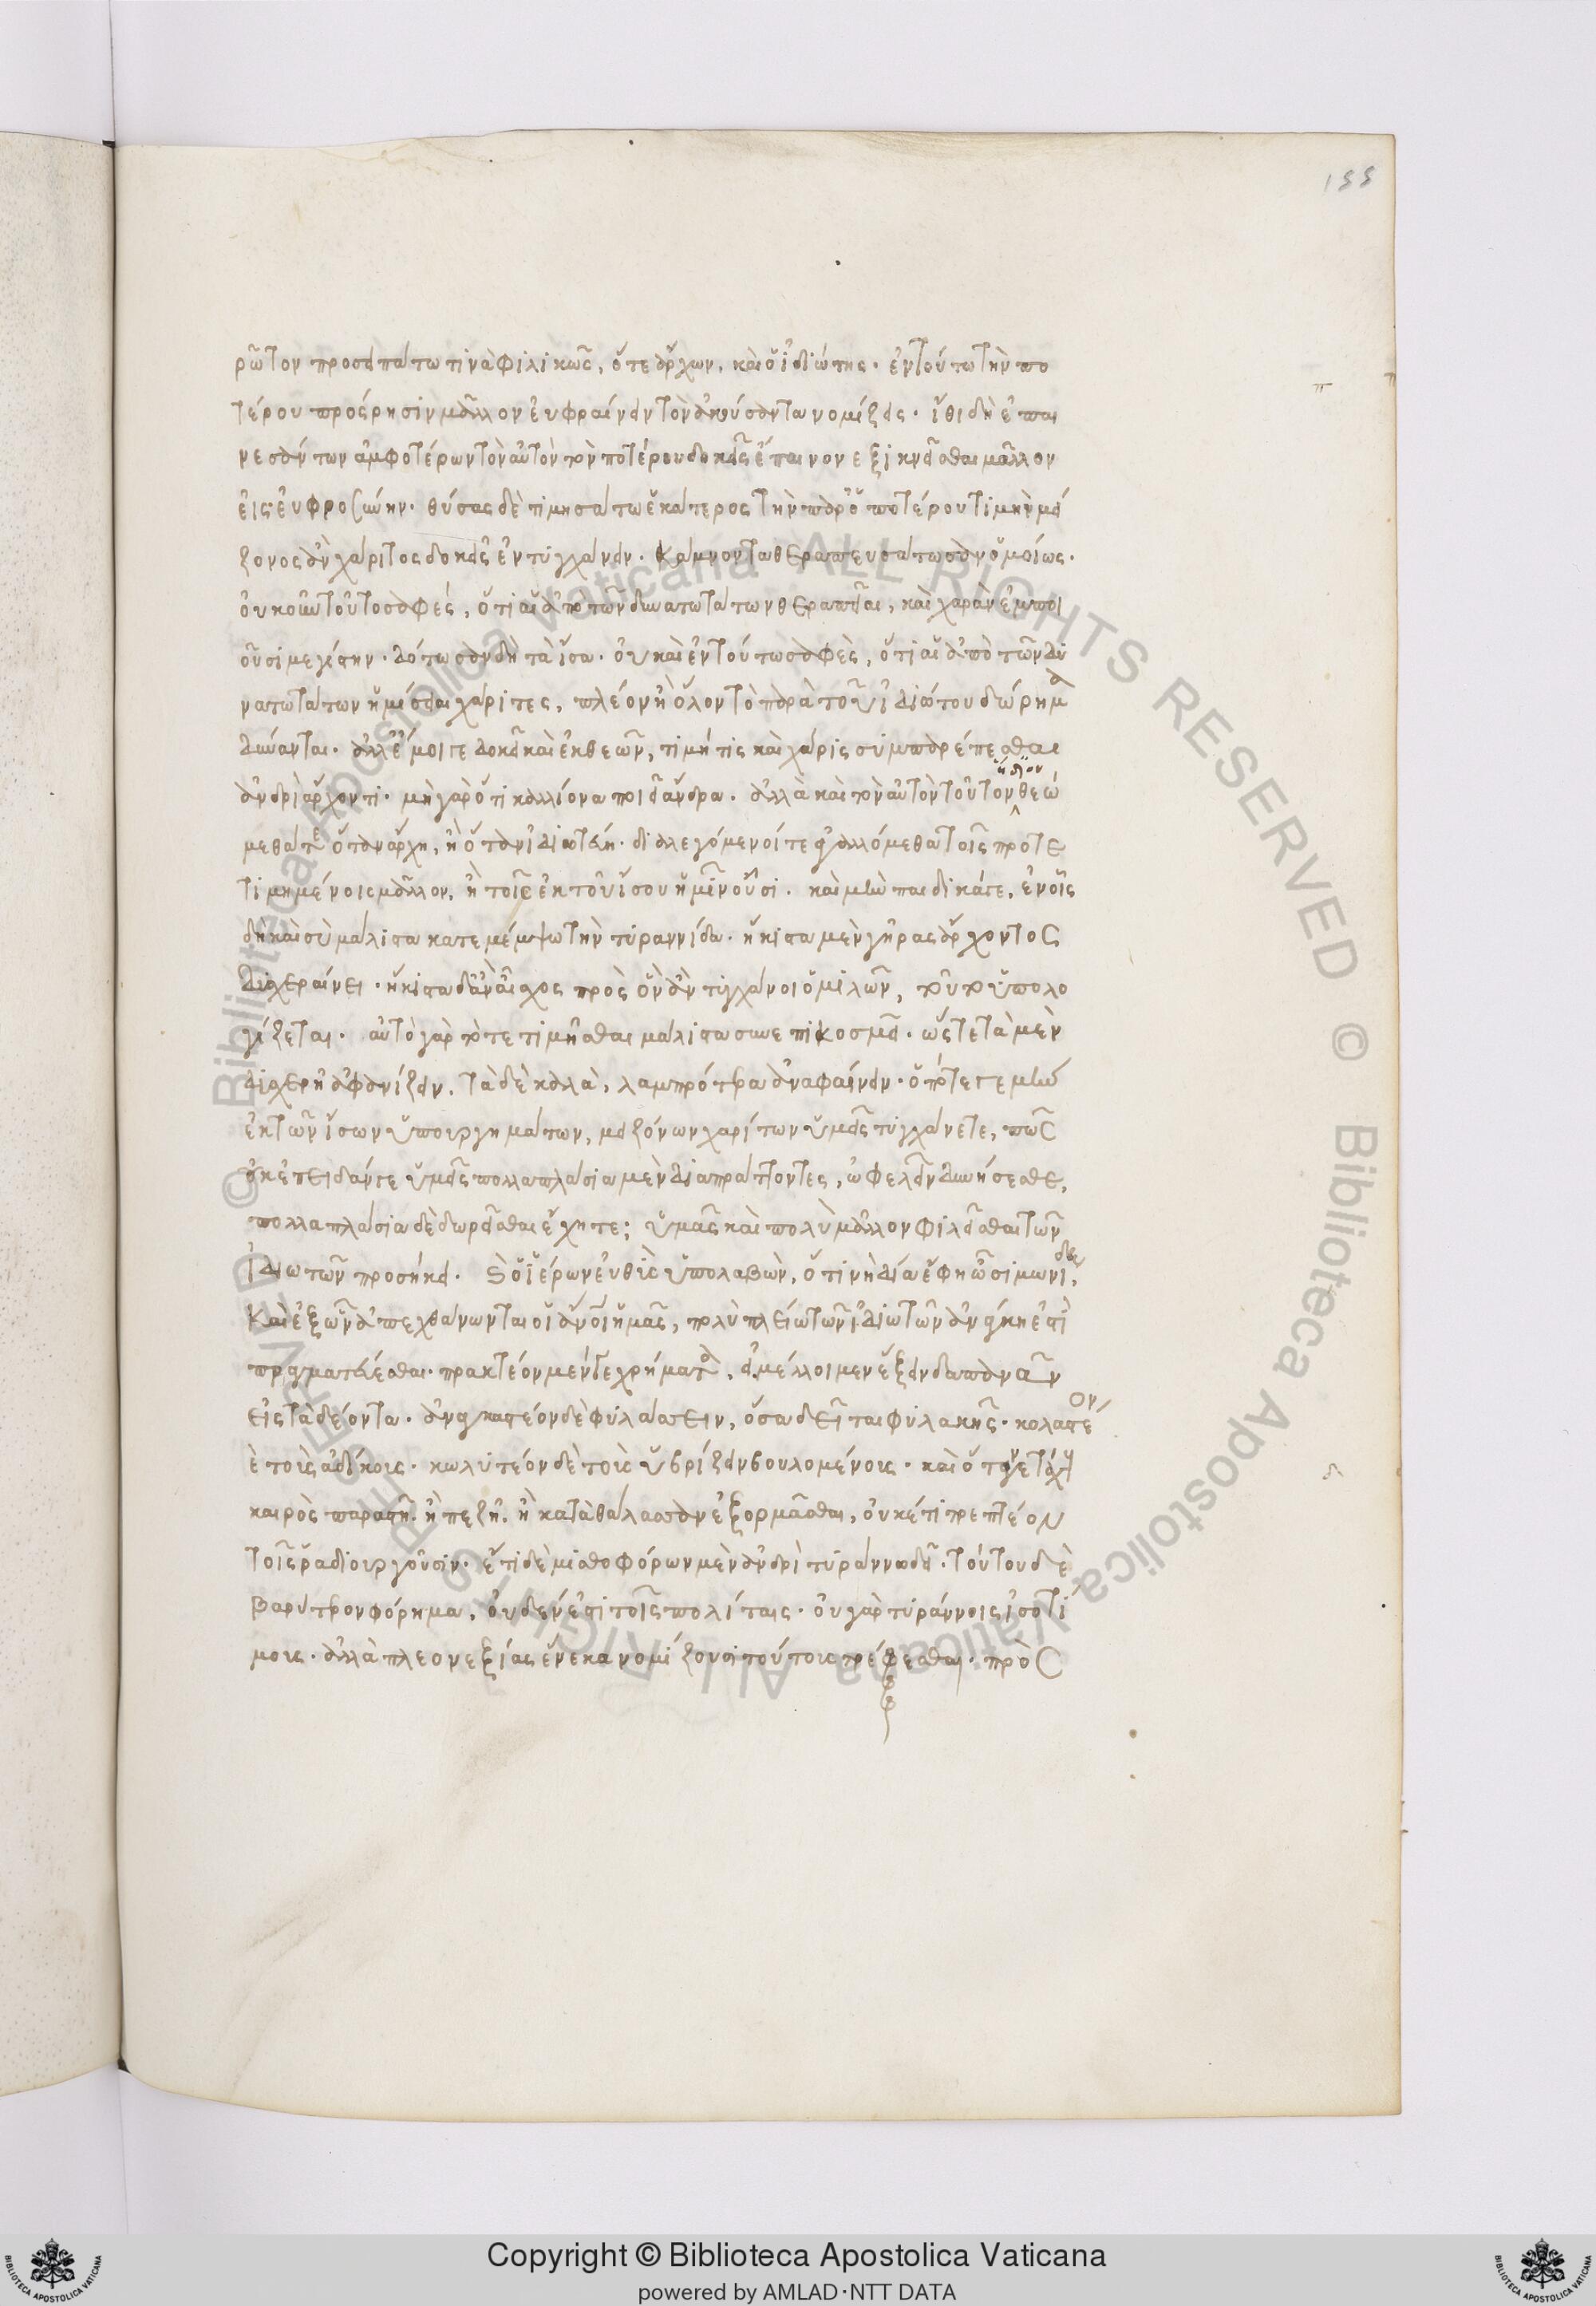 155
ρῶτον προσειπάτω τινὰ φιλικῶς, ὅτε ἄρχων, καὶ ὁ ἰδιώτης. ἐν τούτω τὴν πο
τέρου πρόσρησιν μᾶλλον εὐφραίνειν τὸν ἀκούσαντα νομίζεις. ἴθι δὴ ἐπαι
νεσάντων ἀμφοτέρων τὸν αὐτὸν τὸν ποτέρου δοκεῖς ἔπαινον ἐξικνεῖσθαι μᾶλλον
εἰς εὐφροσύνην. θύσας δὲ τιμησάτω ἑκάτερος τὴν παρ' ὁποτέρου τιμὴν μεί
ζονος ἂν χάριτος δοκεῖς ἐντυγχάνειν. κάμνοντα θεραπευσάτωσαν ὁμοίως.
οὐκοῦν τοῦτο σαφές, ὅτι αἱ ἀπὸ τῶν δυνατωτάτων θεραπεῖαι, καὶ χαρὰν ἐμποι
οῦσι μεγίστην. δότωσαν δὴ τὰ ἴσα. οὐ καὶ ἐν τούτω σαφὲς, ὅτι αἱ ἀπὸ τῶν δυ
νατωτάτων ἡμίσειαι χάριτες, πλέον ἢ ὅλον τὸ παρὰ τοῦ ἰδιώτου δώρημα
δύνανται. ἀλλ' ἔμοιγε δοκεῖ καὶ ἐκ θεῶν, τιμή τις καὶ χάρις συμπαρέπεσθαι
ἀνδρὶ ἄρχοντι. μὴ γὰρ ὅτι καλλίονα ποιεῖ ἄνδρα. ἀλλὰ καὶ τὸν αὐτὸν τοῦτον ἥδιον θεώ
μεθά τε ὅταν ἄρχη, ἢ ὅταν ἰδιωτεύη. διαλεγόμενοί τε ἀγαλλόμεθα τοῖς προτε
τιμημένοις μᾶλλον, ἢ τοῖς ἐκ τοῦ ἴσου ἡμῖν οὖσι. καὶ μὴν παιδικά γε, ἐν οἷς
δὴ καὶ σὺ μάλιστα κατεμέμψω τὴν τυραννίδα. ἥκιστα μὲν γῆρας ἄρχοντος
δυσχεραίνει. ἥκιστα δ' ἂν αἶσχος πρὸς ὃν ἂν τυγχάνοι ὁμιλῶν, τούτου ὑπολο
γίζεται. αὐτὸ γὰρ τότε τιμῆσθαι μάλιστα συνεπικοσμεῖ. ὥστε τὰ μὲν
δυσχερῆ ἀφανίζειν. τὰ δὲ καλὰ, λαμπρότερα ἀναφαίνειν. ὁπότε γε μὴν
ἐκ τῶν ἴσων ὑπουργημάτων, μειζόνων χαρίτων ὑμεῖς τυγχάνετε, πῶς
οὐκ ἐπειδάν γε ὑμεῖς πολλαπλάσια μὲν διαπράττοντες, ὠφελεῖν δυνήσεσθε,
πολλαπλάσια δὲ δωρεῖσθαι ἔχητε; ὑμᾶς καὶ πολὺ μᾶλλον φιλεῖσθαι τῶν
ἰδιωτῶν προσήκει. καὶ ὁ ἱέρων εὐθὺς ὑπολαβὼν, ὅτι νὴ δία ἔφη ὦ σιμωνίδη,
καὶ ἐξ ὧν ἀπεχθάνωνται οἱ ἄνθρωποι ἡμᾶς, πολὺ πλείω τῶν ἰδιωτῶν ἀνάγκη ἐστὶ
πραγματεύεσθαι. πρακτέον μέν γε χρήματα, εἰ μέλλοιμεν ἕξειν δαπανᾶν
εἰς τὰ δέοντα. ἀναγκαστέον δὲ φυλάσσειν, ὅσα δεῖται φυλακῆς. κολαστέον
δὲ τοὺς ἀδίκους. κωλυτέον δὲ τοὺς ὑβρίζειν βουλομένους. καὶ ὅταν γε τάχους
καιρὸς παραστῆ. ἢ πεζῆ. ἢ κατὰ θάλασσαν ἐξορμᾶσθαι, οὐκ ἐπιτρεπτέον
τοῖς ῥαδιουργοῦσιν. ἔτι δὲ μισθοφόρων μὲν ἀνδρὶ τυράννω δεῖ. τούτου δὲ
βαρύτερον φόρημα, οὐδέν ἐστι τοῖς πολίταις. οὐ γὰρ τυράννοις ἰσοτί
μους. ἀλλὰ πλεονεξίας ἕνεκα νομίζουσι τούτους τρέφεσθαι. πρὸς
Copyright © Biblioteca Apostolica Vaticana
powered by AMLAD·NTT DATA